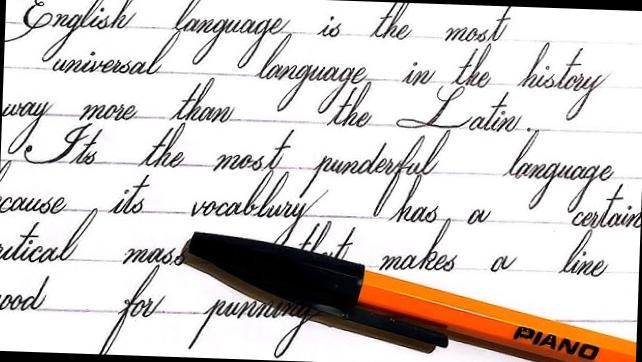 English language is the most
universal language in the history
way more than the Latin.
Its the most punderful language
cause its vocablury has a certain
ritical mass that makes a line
ood for punning
PIANO